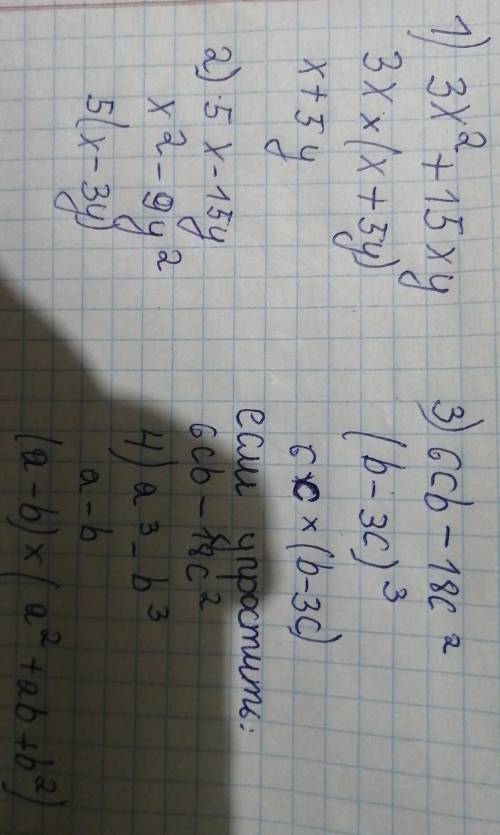 1) 3x² + 15xy
3x × (x + 5y)
x + 5y
2) 5x - 15y
x² - 9y²
5(x - 3y)
3) 6cb - 18c²
(b - 3c)³
6c × (b - 3c)
если упростить:
6cb - 18c²
4) a³ - b³
a - b
(a - b) × (a² + ab + b²)